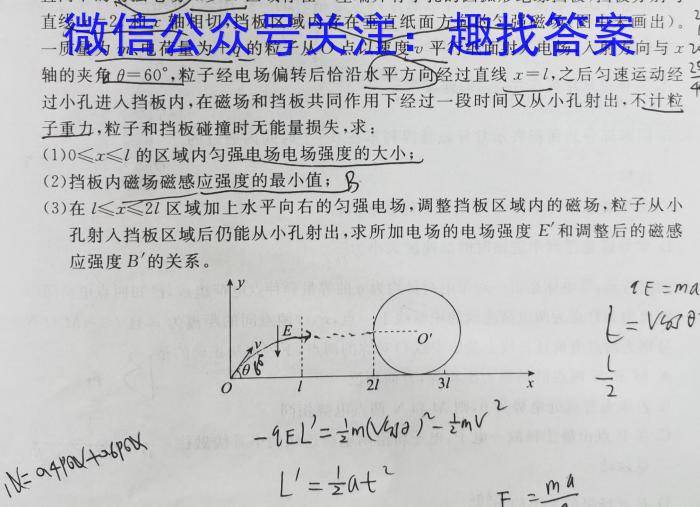 直线
和x轴相切,挡板区域内存在垂直纸面方
微信公众号关注:趣找答案
一质量为
的粒子从O点以速度v平
与x
轴的夹角θ=60°,粒子经电场偏转后恰沿水平方向经过直线x=l,之后匀速运动经
过小孔进入挡板内,在磁场和挡板共同作用下经过一段时间又从小孔射出,不计粒
子重力,粒子和挡板碰撞时无能量损失,求:
(1)0≤x≤l的区域内匀强电场电场强度的大小;
(2)挡板内磁场磁感应强度的最小值; B
(3)在l≤x≤2l区域加上水平向右的匀强电场,调整挡板区域内的磁场,粒子从小
孔射入挡板区域后仍能从小孔射出,求所加电场的电场强度E′和调整后的磁感
应强度B′的关系。
y
qE=ma
E
v
O′
θ
O
l
2l
3l
x
l
2
-qEL′=½m(Vcosθ)²-½mV²
L′=½at²